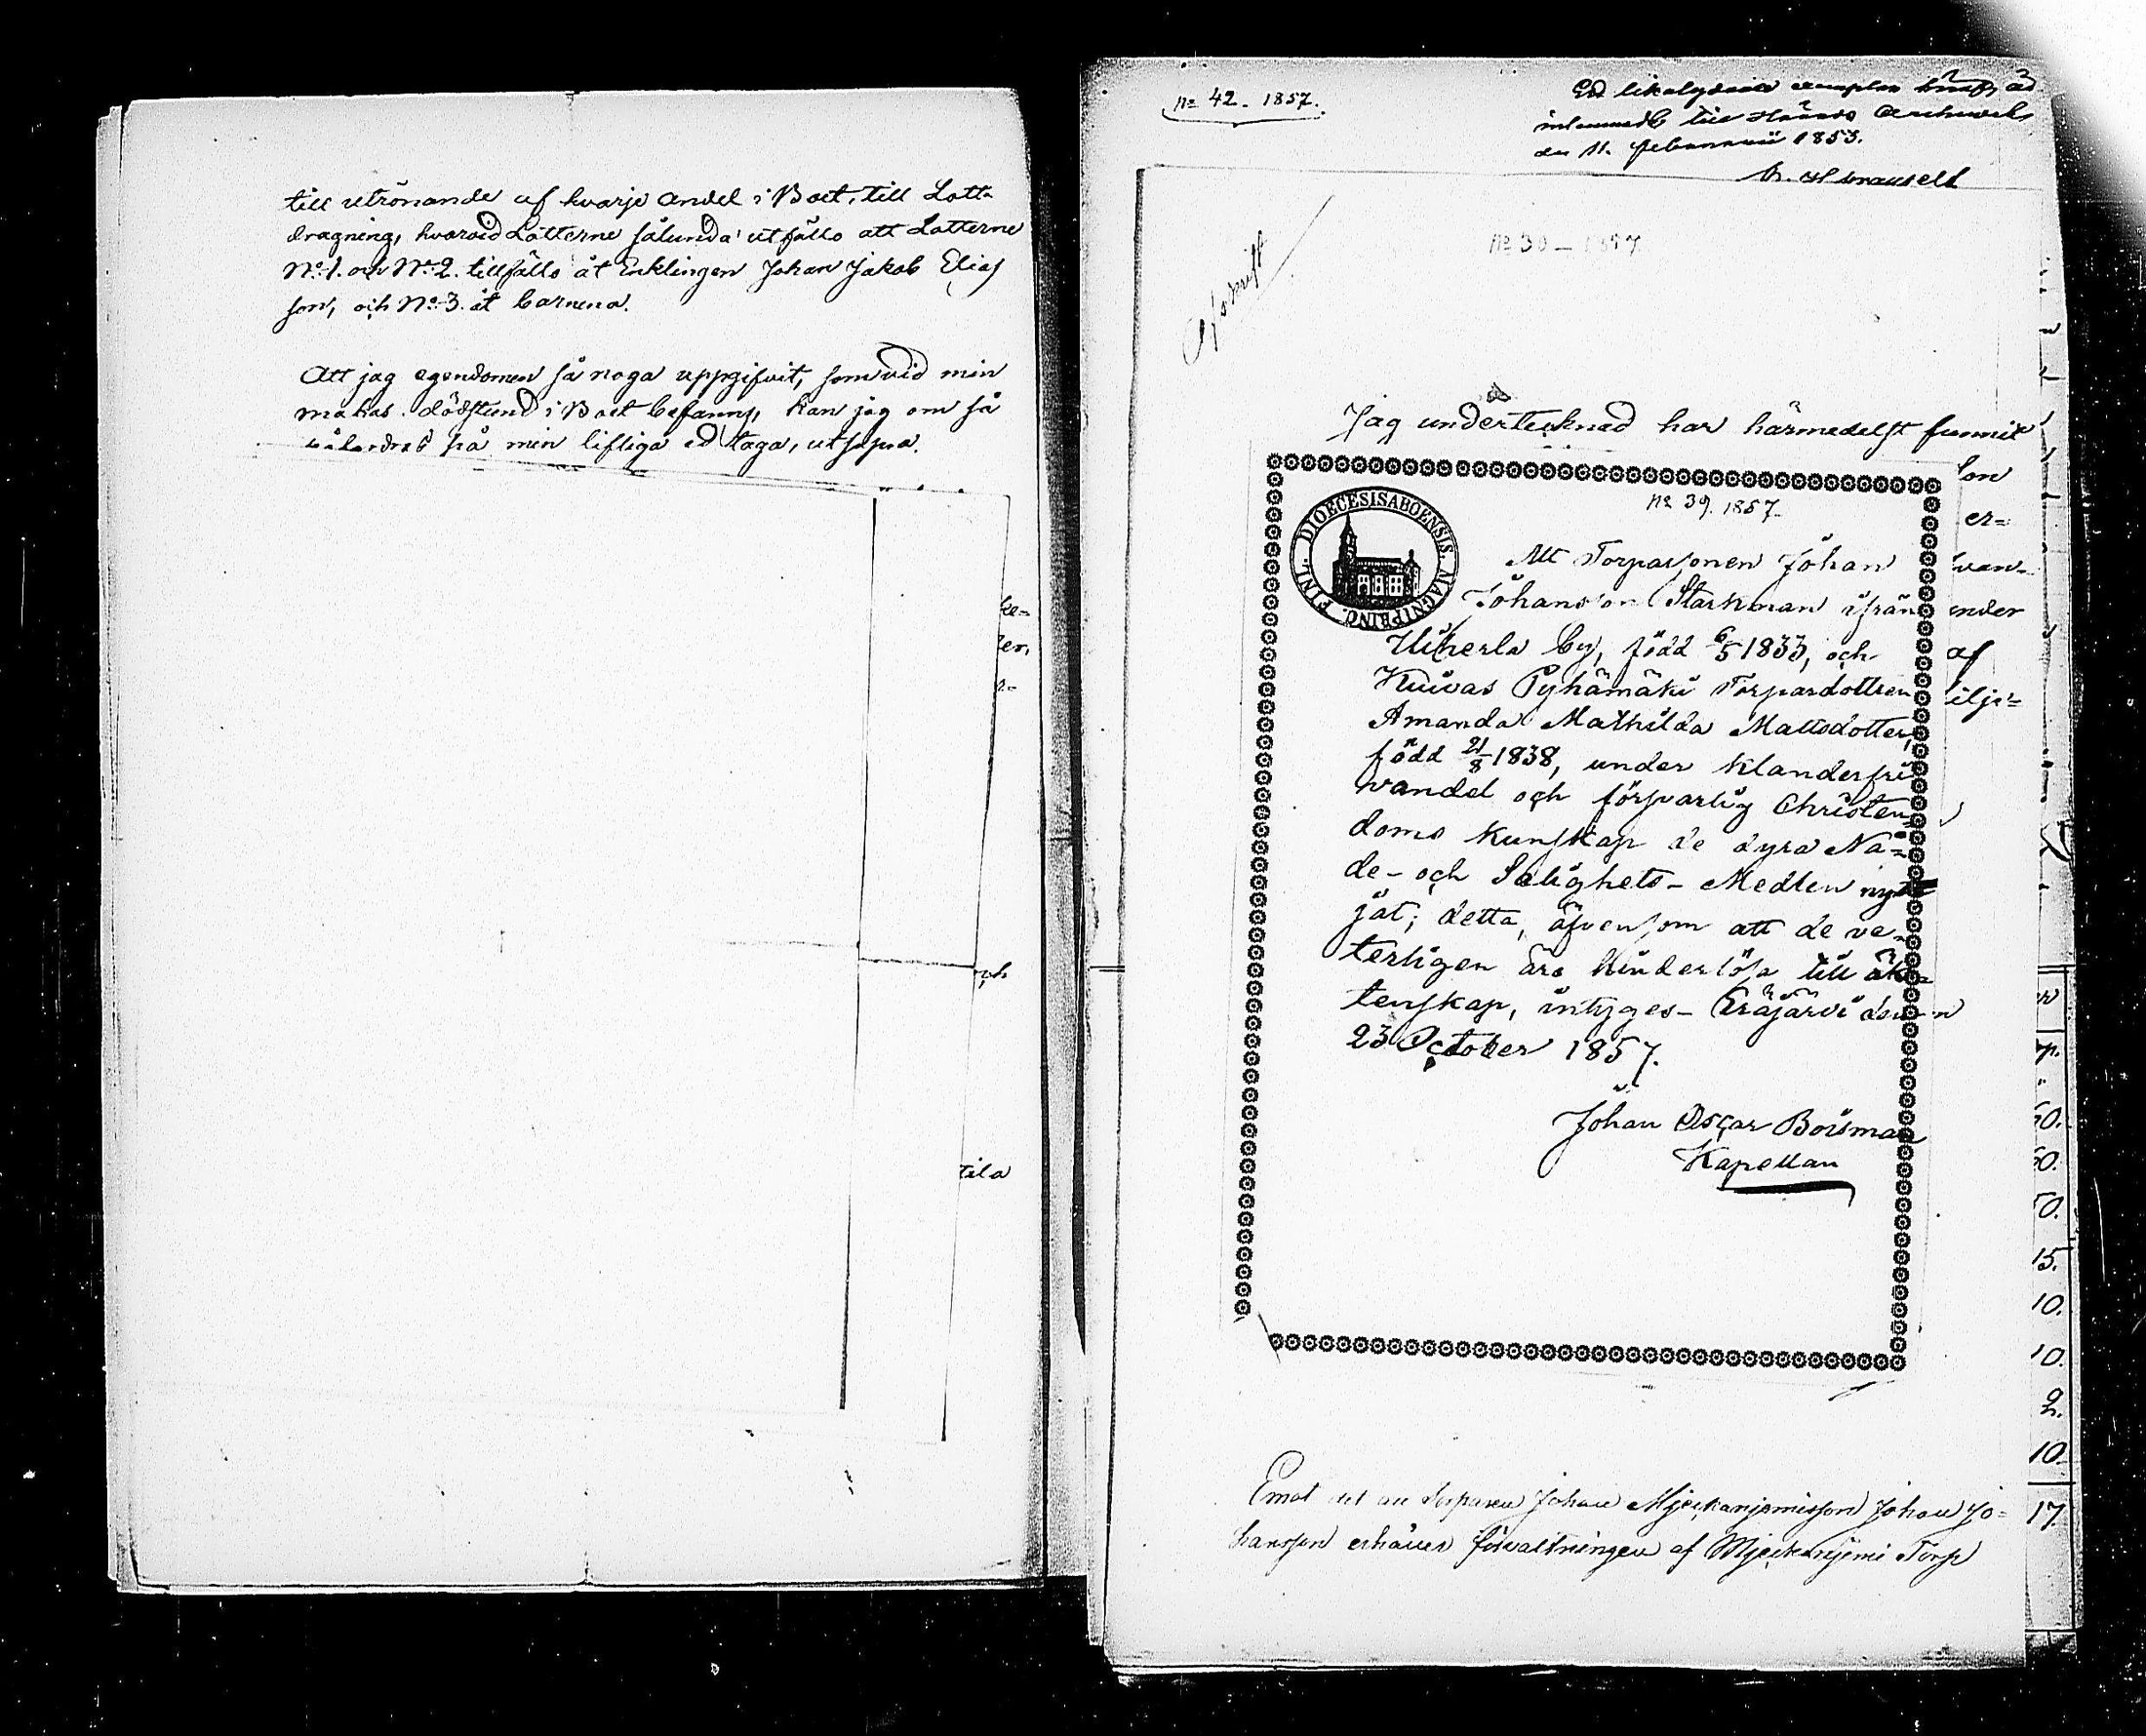 till utrönande af hvarje andel i Boet, till Lott-
dragning, hvarvid Lotterne sålunda utföllo att Lotterne
No 1. och No 2. tillföllo åt Enklingen Johan Jakob Elias
son, och No 3. åt barnena.
Att jag egendomen så noga uppgifvit, som vid min
makas dödstund i Boet befanns, kan jag om så
på min lifliga ed taga, utsäga.
ke-
er,
tila
No 42. 1857.
Ett likalydande exemplar
till Härads Archivet
den 11. Februarii 1853.
Afskrift
No 30 – 1857
Jag undertecknad har härmedelst funnit
No 39. 1857.
DIOECESIS ABOENSIS. MAGNI PRINC. FINL.
Att Torparsonen Johan
Johansson Starkman ifrån
Uiherla by, född 6/5 1833, och
Kuivas Pyhämäki Torpardottren
Amanda Mathilda Mattsdotter,
född 21/8 1838, under klanderfri
vandel och försvarlig Christen-
doms kunskap de dyra Nå-
de- och Salighets-Medlen nytt-
jat; detta, äfvensom att de ve-
terligen äro hinderlösa till äk-
tenskap, intyges – Eräjärvi den
23 October 1857.
Johan Oscar Boisman
Kapellan
er=
ender
af
ilje=
Emot det att Torparen Johan Johan Jo=
hansson förvaltningen af Torp
50.
50.
50.
15.
10.
10.
2.
10.
17.